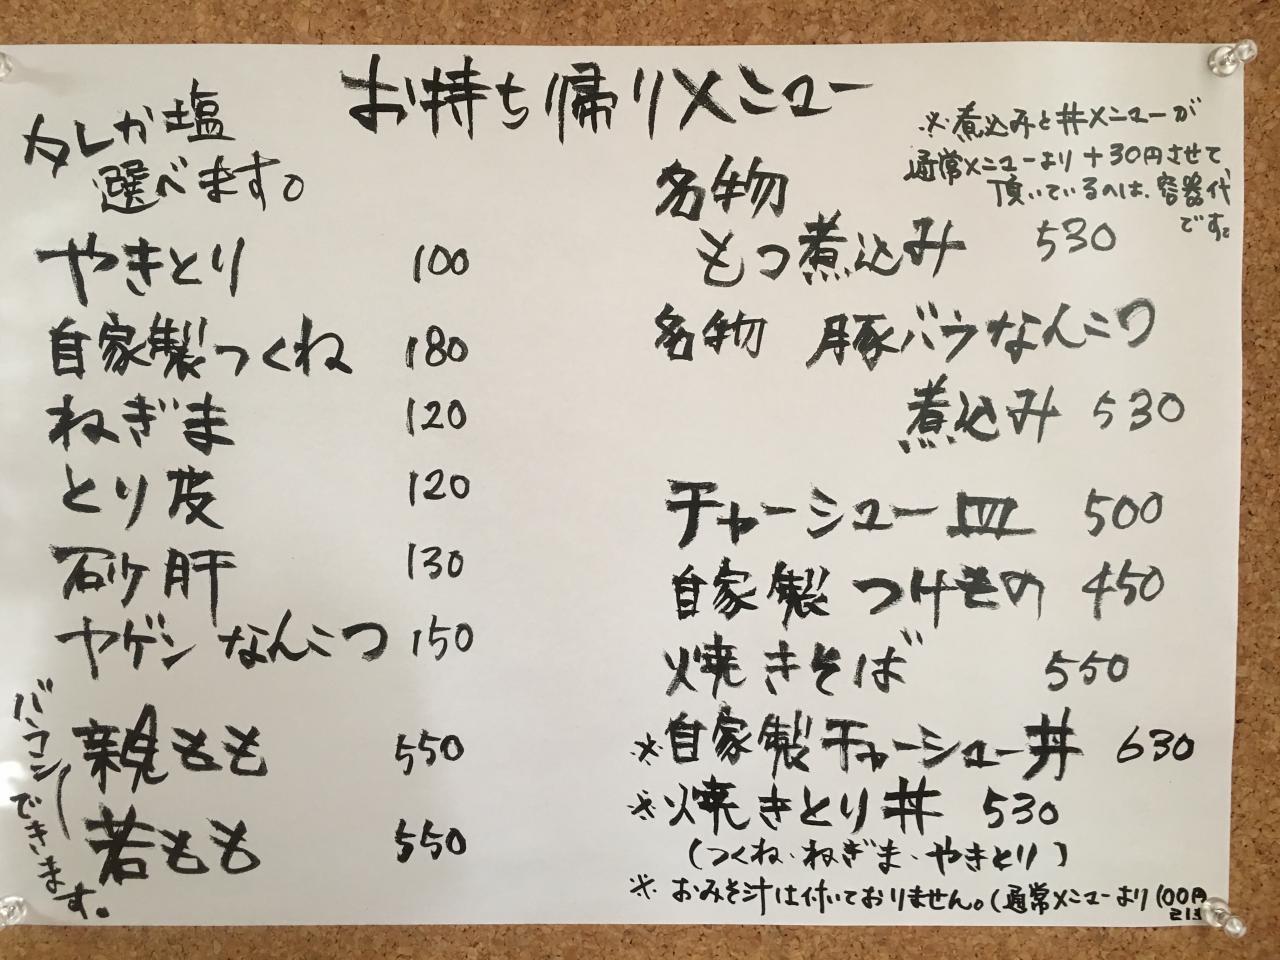 お持ち帰りメニュー
タレか塩
選べます。
やきとり 100
自家製つくね 180
ねぎま 120
とり皮 120
砂肝 130
ヤゲンなんこつ 150
親もも 550
若もも 550
できます。
※煮込みと丼メニューが
通常メニューより+30円させて
頂いているのは、容器代
です。
名物
もつ煮込み 530
名物 豚バラなんこつ
煮込み 530
チャーシュー皿 500
自家製つけもの 450
焼きそば 550
※自家製チャーシュー丼 630
※焼きとり丼 530
(つくね・ねぎま・やきとり)
※おみそ汁は付いておりません。(通常メニューより100円